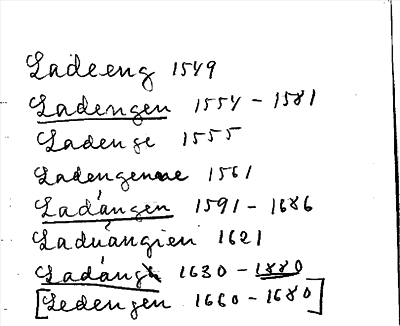 Ladeeng 1549
Ladengen 1554 - 1581
Ladenge 1555
Ladengenne 1561
Ladángen 1591 - 1686
Laduángien 1621
Ladáng 1630 - 1880
[Ledengen 1660 - 1680]